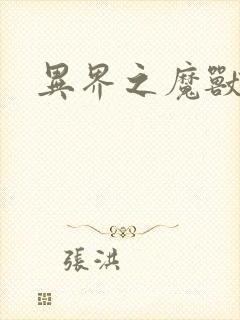 異界之魔獸
張洪